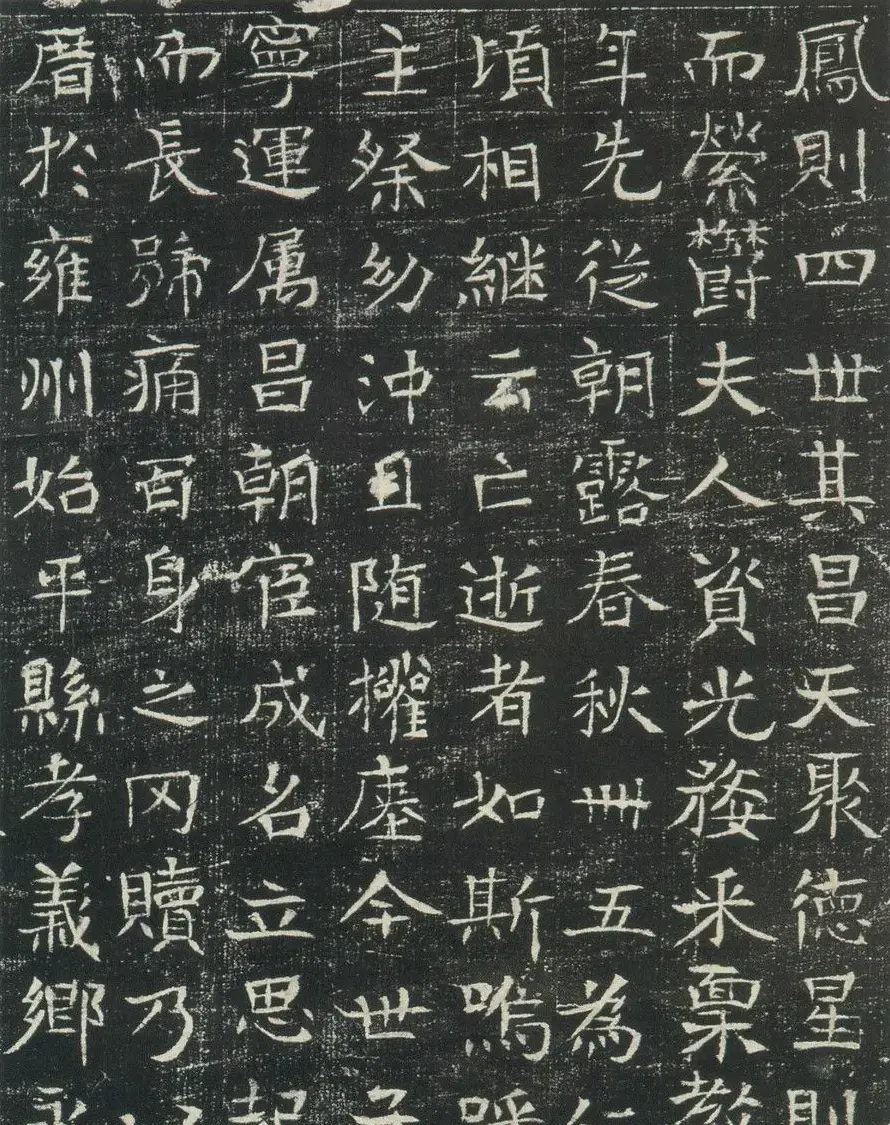 鳳則四世其昌天聚徳星則
而縈欝夫人資光婺采稟教
年先從朝露春秋卌五為仁
頃相継云亡逝者如斯嗚呼
主祭幼沖且随今世子
寧運属昌朝宦成名立思起
而長號痛百身之冈贖乃
厝於雍州始平縣孝義鄉永